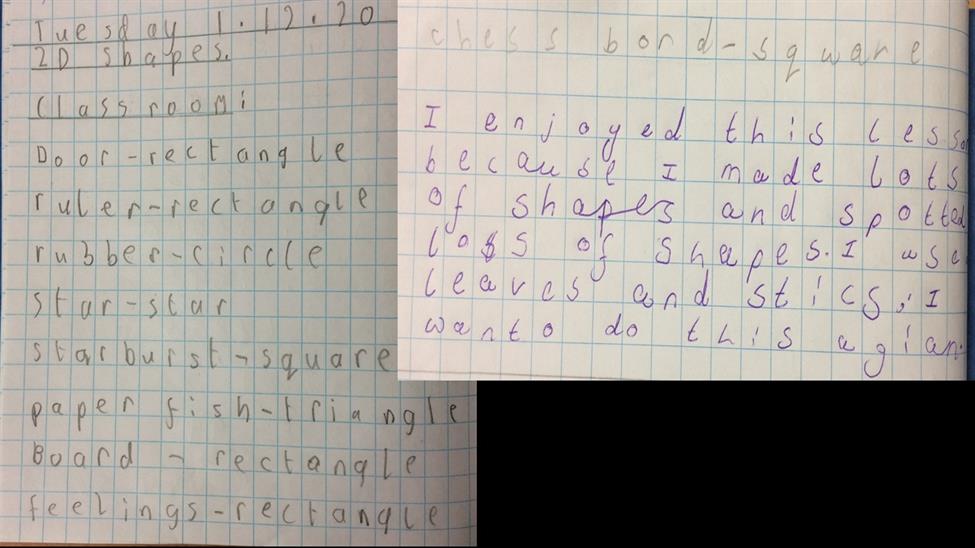 Tuesday 1.12.20
2D shapes.
Classroom:
Door-rectangle
ruler-rectangle
rubber-circle
star-star
starburst-square
paper fish-triangle
Board - rectangle
feelings-rectangle
chess bord-square
I enjoyed this lesson
because I made lots
of shapes and spotted
lots of shapes. I use
leaves and stics, I
wanto do this agian.